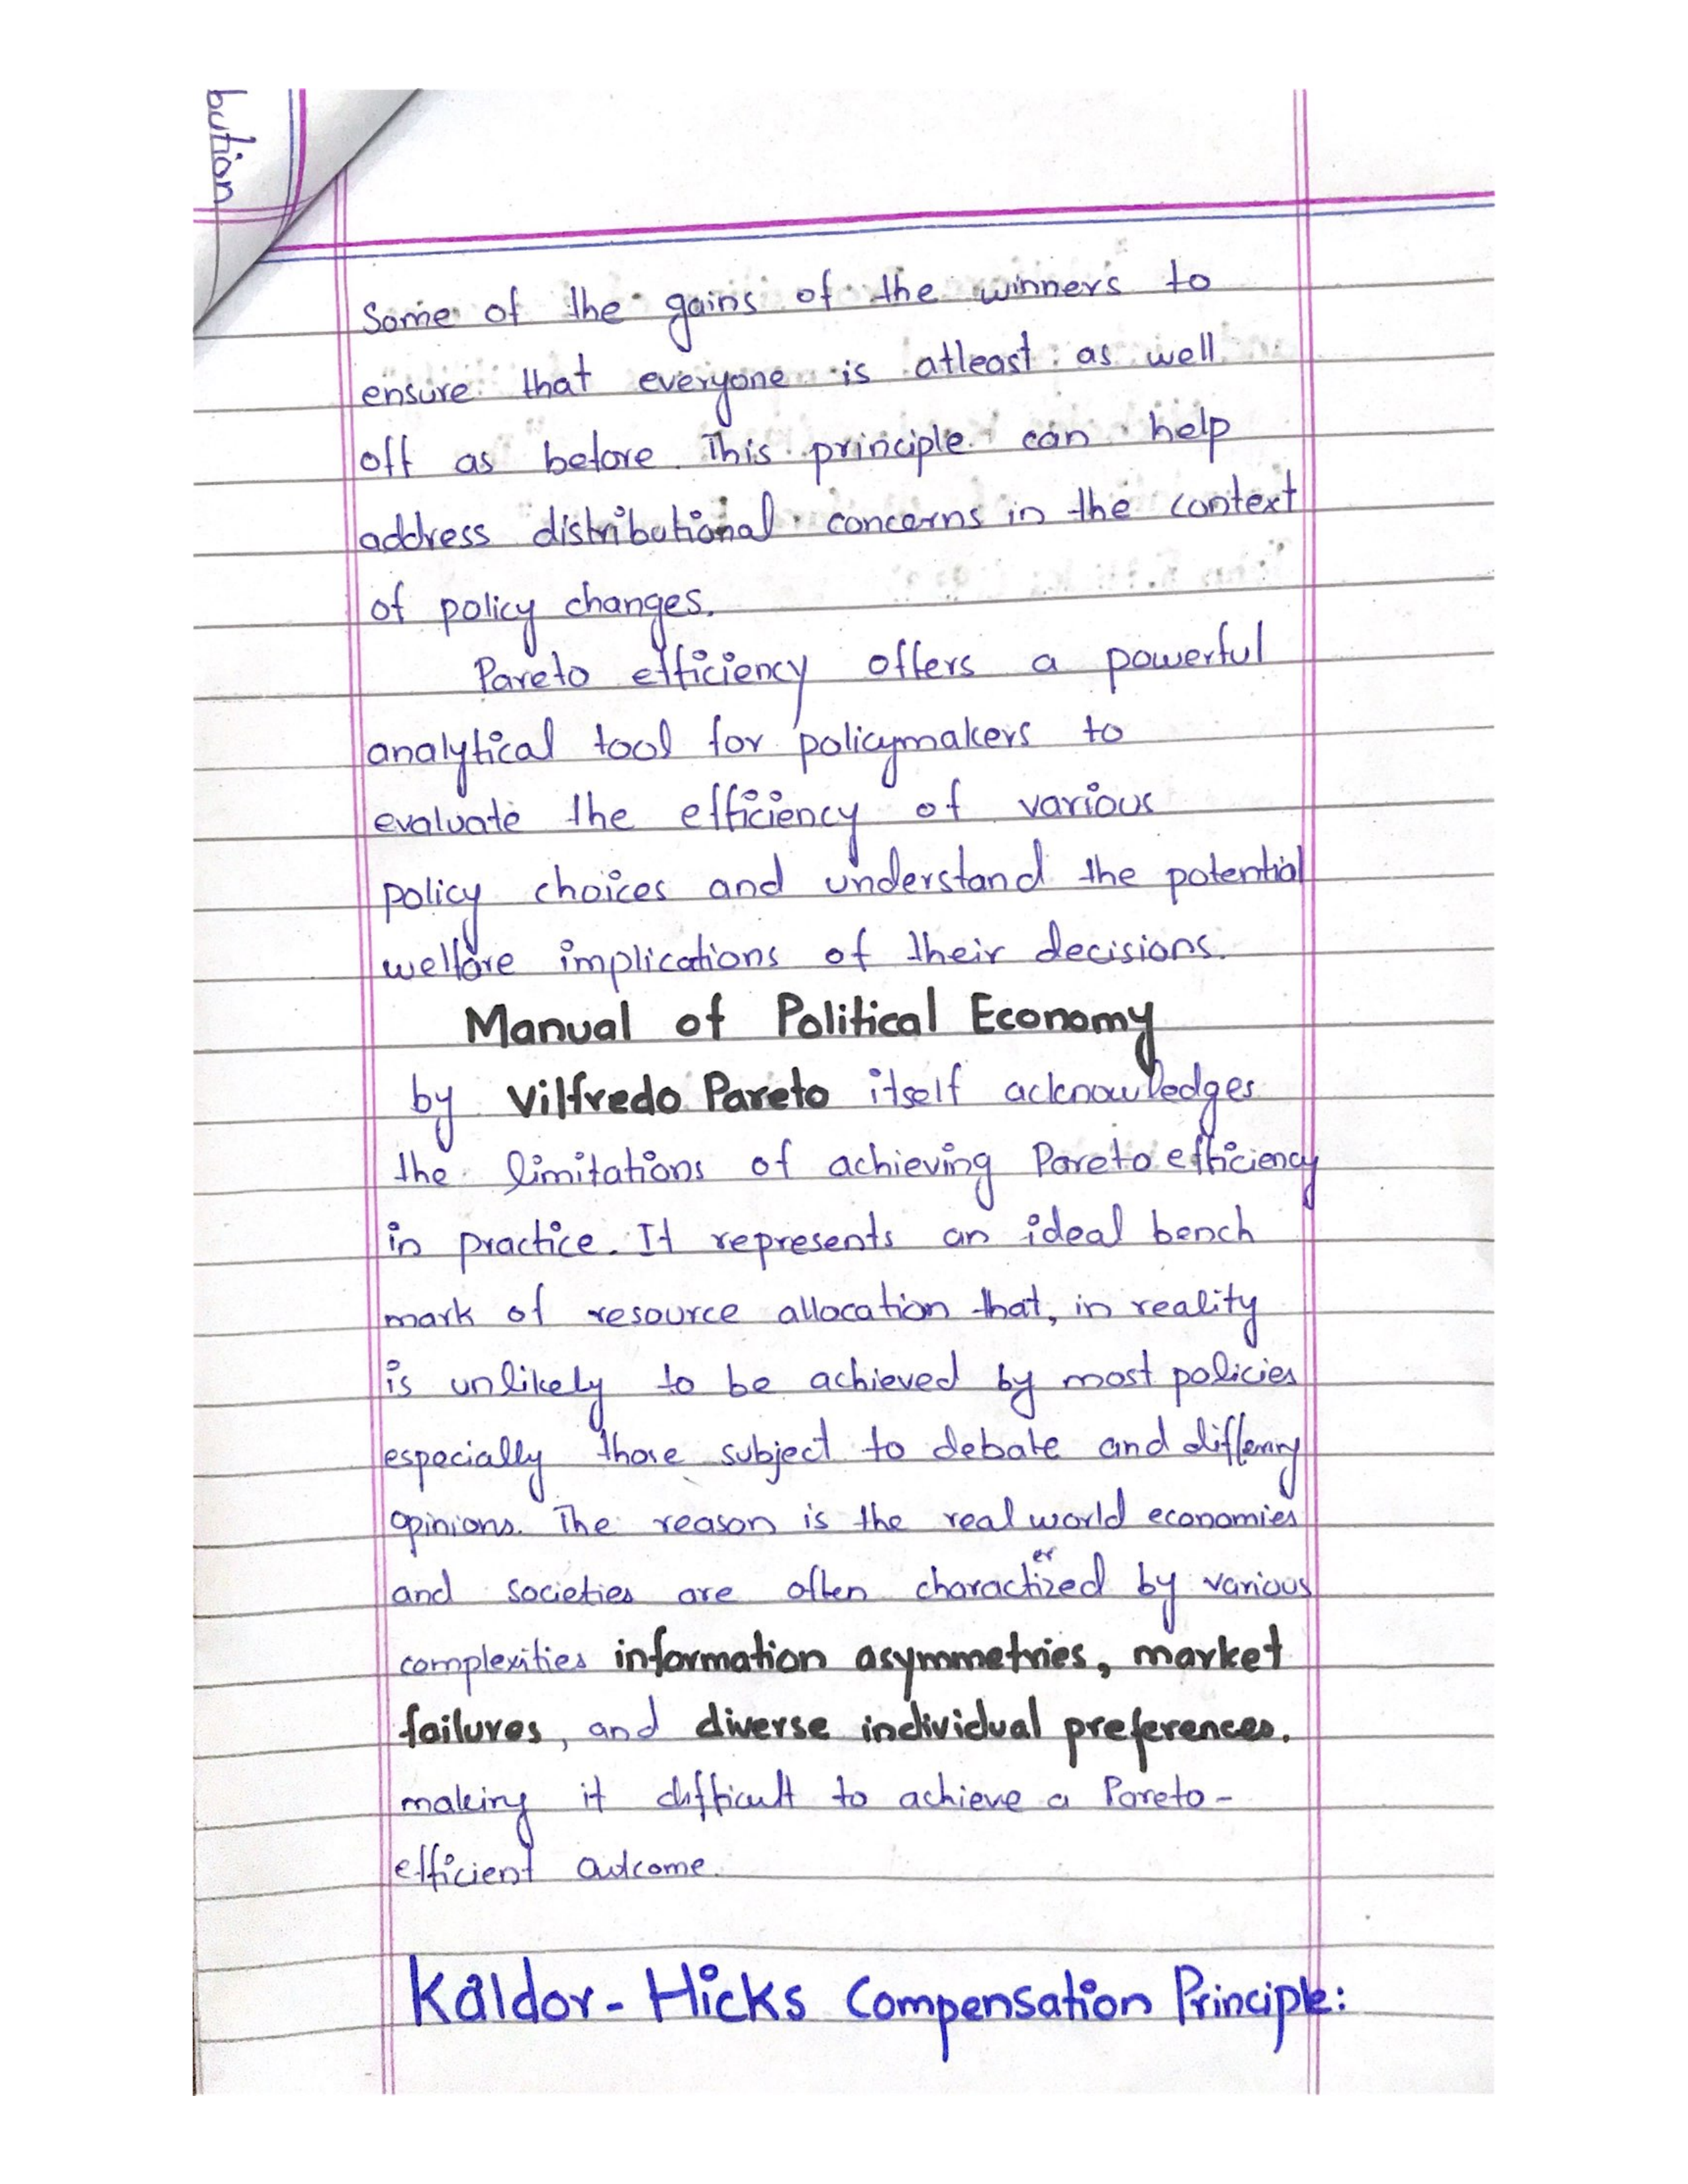 bution
Some of the gains of the winners to
ensure that everyone is atleast as well
off as before. This principle can help
address distributional concerns in the context
of policy changes.
Pareto efficiency offers a powerful
analytical tool for policymakers to
evaluate the efficiency of various
policy choices and understand the potential
welfare implications of their decisions.
Manual of Political Economy
by Vilfredo Pareto itself acknowledges
the limitations of achieving Pareto efficiency
in practice. It represents an ideal bench
mark of resource allocation that, in reality
is unlikely to be achieved by most policies
especially those subject to debate and differing
opinions. The reason is the real world economies
and societies are often characterized by various
complexities information asymmetries, market
failures, and diverse individual preferences.
making it difficult to achieve a Pareto-
efficient outcome.
Kaldor-Hicks Compensation Principle: